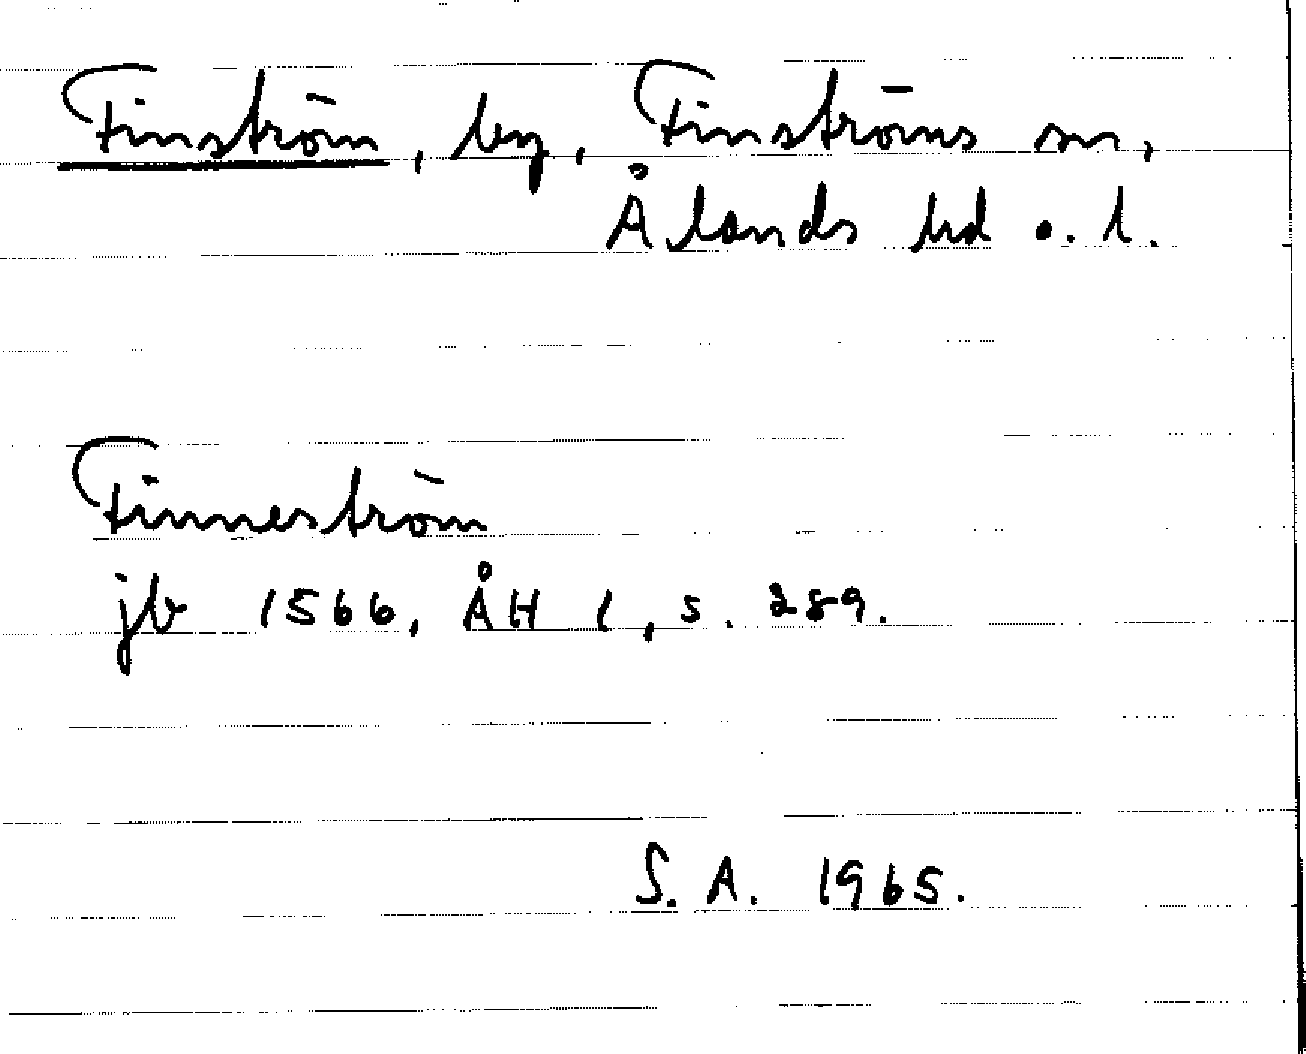 Finström, by, Finströms sn,
Ålands hd o. l.
Finneström
jb 1566, ÅH 1, s. 289.
S. A. 1965.